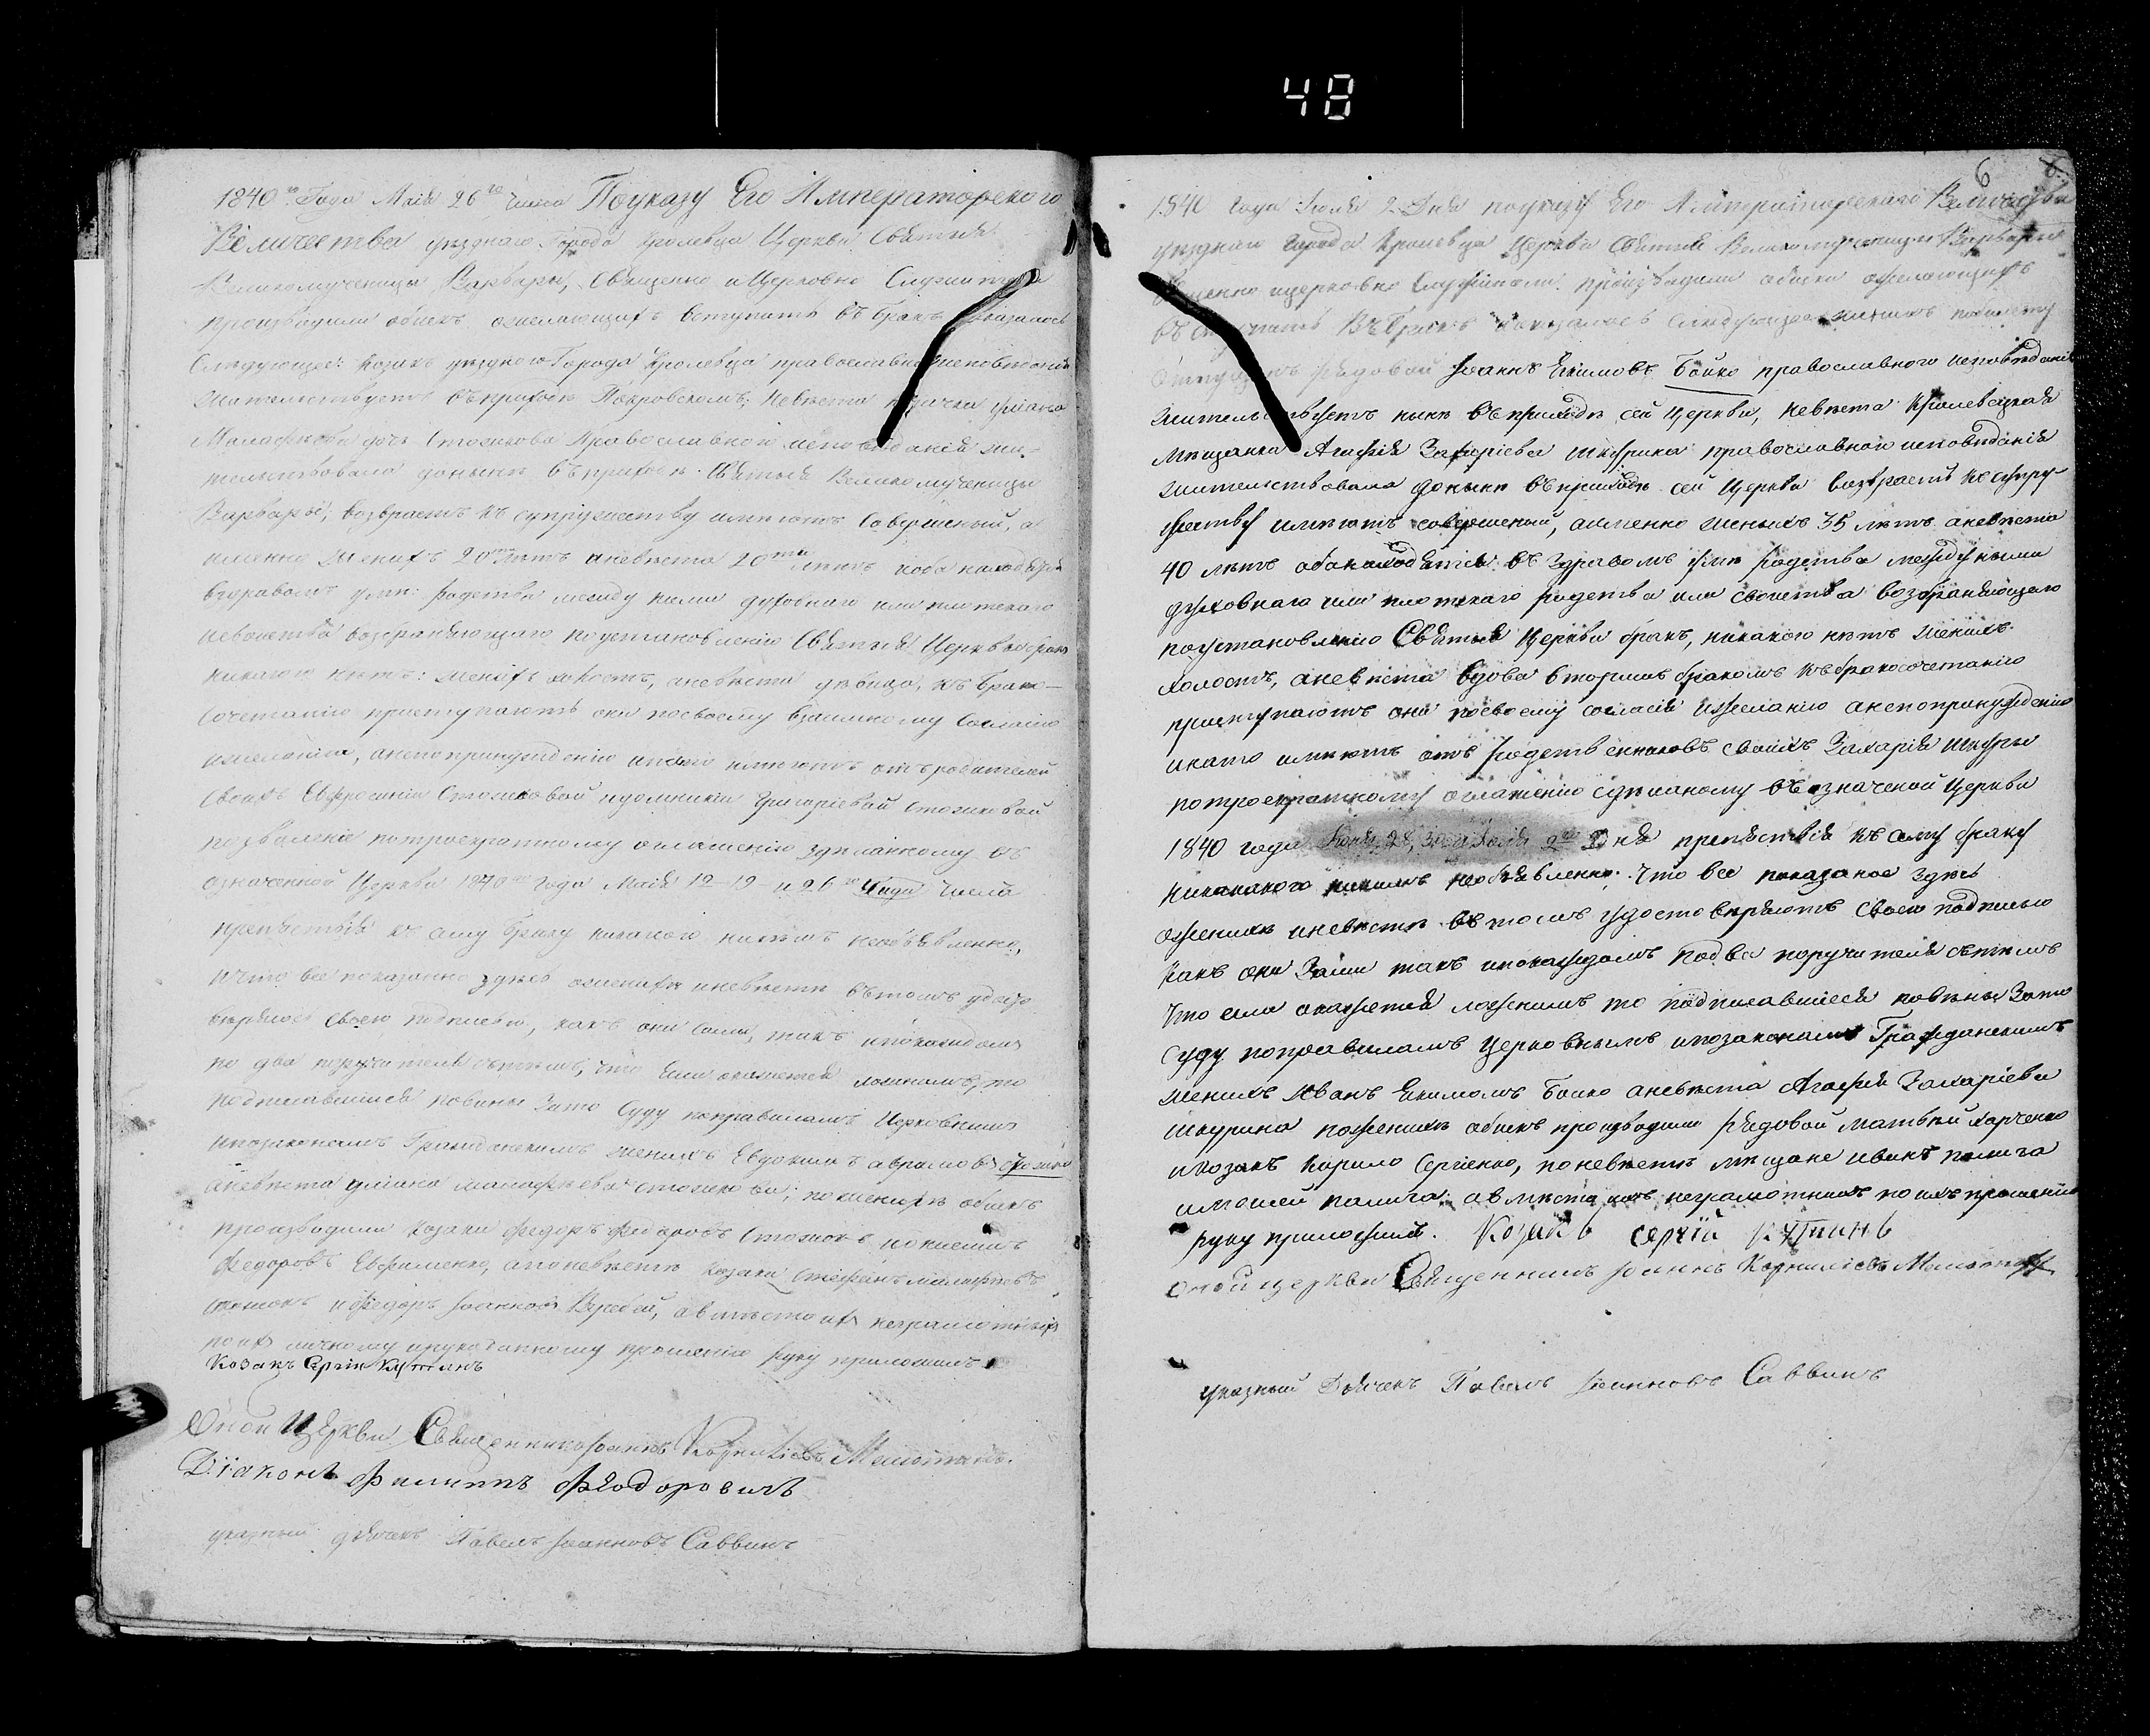 48
1840го Года Маія 26го числа По указу Его Императорского
Величества уезднаго Города Кролевца Церкви Святыя
Великомученицы Варвары, Священно и Церковно Служители
производили обискъ ожелающихъ вступить въ бракъ показалось
Следующее: козакъ уездного Города Кролевца православного исповеданія
жительствуетъ въ приходе Покровскомъ; Невеста козачка уліана
Малафеева дочь Стожкова Православного исповеданія жи-
тельствовала доныне въ приходе Святыя Великомученицы
Варвары; возврастъ къ супружеству имеютъ Совершеный, а
именно женихъ 20 летъ аневеста 20ти летъ иоба находятся
вздравомъ уме: родства между ними духовнаго или плотскаго
исвойства возбраняющаго поустановленію Святыя Церкви бракъ
никакого нетъ: женихъ холостъ, аневеста девица, къ брако-
сочетанію приступаютъ они посвоему взаимному Согласію
ижеланію, анепопринужденію инато имеютъ отъродителей
своихъ Евфросиніи Стожковой идомникіи Григоріевой Стожковой
позволеніе потроекратному оглашенію зделанному въ
означенной Церкви 1840го Года Маія 12 19 и 26го числа
препятствія къ сему браку никакого никемъ необъявленно,
ичто все показанно здесь ожениху иневесте втомъ удосто
веряютъ своею подписью, какъ они сами, такъ ипокаждомъ
по два поручителя стемъ, что Ели окажется ложнымъ, то
подписавшіися повины Зато Суду поправиламъ Церковнымъ
ипозаконамъ Гражданскимъ женихъ Евдокимъ аврамовъ стожко
аневеста уліана малафеева стожкова; поженихе обискъ
производили козаки Федоръ Федоровъ Стожокъ
Федоровъ Ефименко, апоневесте козаки Стефанъ малафеевъ
стожокъ иФедоръ Іоанновъ Веребей, авместо ихъ неграмотныхъ
поихъ личному ирукоданному прошенію руку приложилъ
Козакъ Сергій Кутманъ
Оной Церкви Священникъ Іоаннъ Корниліевъ
Діаконъ Филипъ Федоровичъ
указный дьячекъ Павелъ Іоанновъ Саввинъ
6
1840 года Іюля 2 Дня поуказу Его Императорскаго Величества
уезднаго Города Кролевца Церкви Святыя Великомученицы Варвары
Священно ицерковно служители производили обискъ ожелающихъ
въступить Въбракъ показалось следующее женихъ
рядовой Іоаннъ Екимовъ Бойко православного исповеданія
жительствуетъ ныне въприходе сей Церкви, невеста Кролевецкая
мещанка Агафія Захаріева шкурина православной исповеданія
жительствовала доныне въприходе сей Церкви возврастъ къ супру
жеству имеютъ совершеный, аименно женихъ 35 летъ аневеста
40 летъ обанаходятся въ здравомъ уме родства междуними
духовнаго или плотскаго родства или свойства возбраняющаго
поустановленію Святыя Церкви бракъ, никакого нетъ женихъ
холостъ, аневеста вдова вторымъ бракомъ къбракосочетанію
приступаютъ они посвоему согласію ижеланію анепопринужденію
инато имеютъ отъ родственниковъ своихъ Захарія шкуры
потроекратному оглашенію сделаному въозначеной Церкви
1840 года Іюня 28, 30 и Іюля 2го Дня препятствія къ сему браку
никакого никемъ необъявленно. Что все показаное здесь
ожениху иневесте въ томъ удостоверяютъ своею подписью
какъ они Сами такъ ипокаждомъ подва поручителя стемъ
Что если окажется ложнымъ то подписавшіися повины Зато
Суду поправиламъ Церковнымъ ипозаконамъ Гражданскимъ
женихъ Иванъ Екимовъ Бойко аневеста Агафія Захаріева
шкурина поженихе обискъ производили рядовой матвей Харченко
икозакъ Кирило Сергіенко, поневесте мещане иванъ палига
имосей палига: авместо ихъ неграмотныхъ по ихъ прошенію
руку приложилъ. Козакъ Сергій Кутманъ
оной церкви Священникъ Іоаннъ Корниліевъ
указный Дьячекъ Павелъ Іоанновъ Саввинъ